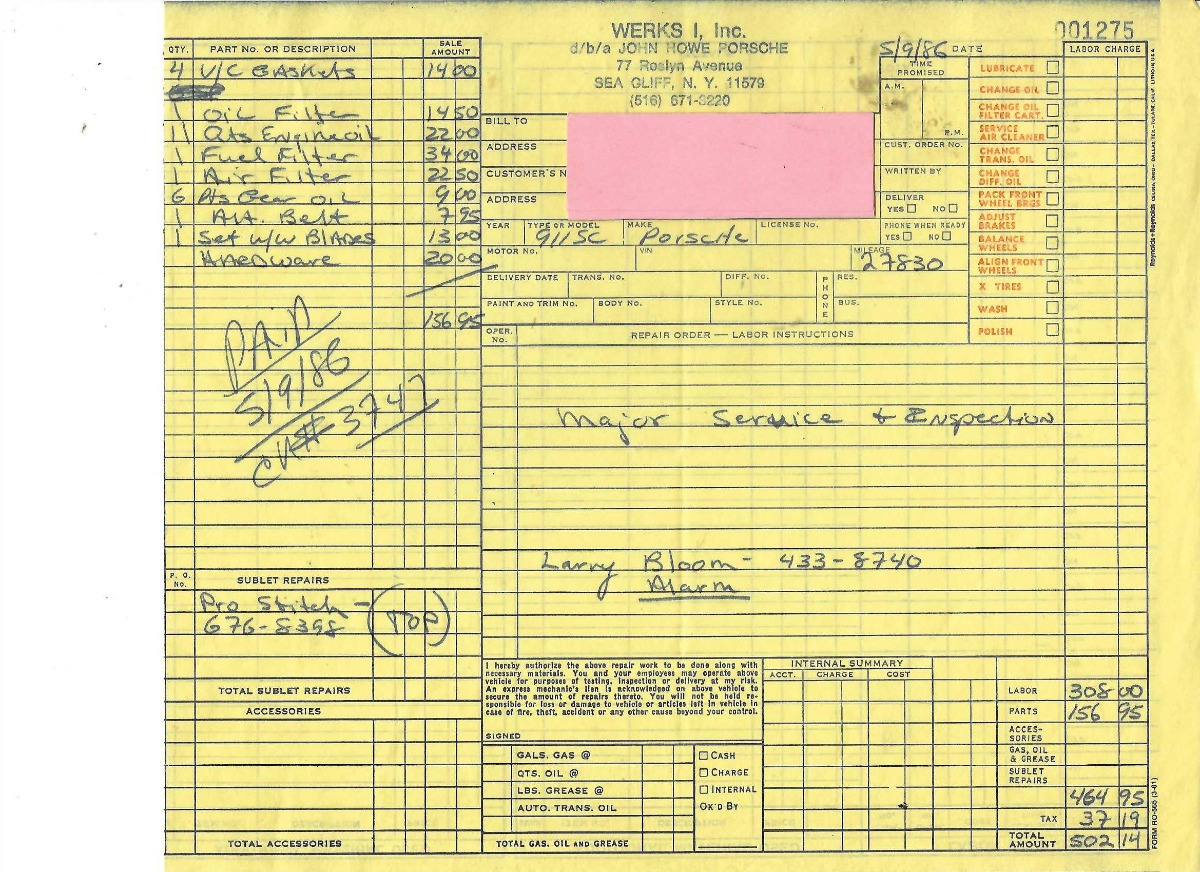 WERKS I, Inc.
d/b/a JOHN HOWE PORSCHE
77 Roslyn Avenue
SEA CLIFF, N. Y. 11579
(516) 671-3220
001275
5/9/86 DATE
TIME PROMISED
A.M.
P.M.
CUST. ORDER No.
WRITTEN BY
DELIVER
YES NO
PHONE WHEN READY
YES NO
QTY. PART No. OR DESCRIPTION SALE AMOUNT
4 V/C Gaskets 14 00
1 Oil Filter 14 50
11 Qts Engine oil 22 00
1 Fuel Filter 34 00
1 Air Filter 22 50
6 Pts Gear Oil 9 00
1 Alt. Belt 7 95
1 Set w/w Blades 13 00
Hardware 20 00
156 95
PAID
5/9/86
CK# 3747
BILL TO
ADDRESS
CUSTOMER'S N
ADDRESS
YEAR TYPE OR MODEL MAKE LICENSE No.
911SC Porsche
MOTOR No. VIN MILEAGE
27830
DELIVERY DATE TRANS. No. DIFF. No. PHONE RES.
PAINT AND TRIM No. BODY No. STYLE No. BUS.
OPER. No. REPAIR ORDER — LABOR INSTRUCTIONS
LABOR CHARGE
LUBRICATE
CHANGE OIL
CHANGE OIL FILTER CART.
SERVICE AIR CLEANER
CHANGE TRANS. OIL
CHANGE DIFF. OIL
PACK FRONT WHEEL BRGS
ADJUST BRAKES
BALANCE WHEELS
ALIGN FRONT WHEELS
X TIRES
WASH
POLISH
Major Service & Inspection
Larry Bloom - 433-8740
Alarm
P. O. No. SUBLET REPAIRS
Pro Stitch -
676-8398 (TOP)
TOTAL SUBLET REPAIRS
ACCESSORIES
TOTAL ACCESSORIES
I hereby authorize the above repair work to be done along with
necessary materials. You and your employees may operate above
vehicle for purposes of testing, inspection or delivery at my risk.
An express mechanic's lien is acknowledged on above vehicle to
secure the amount of repairs thereto. You will not be held re-
sponsible for loss or damage to vehicle or articles left in vehicle in
case of fire, theft, accident or any other cause beyond your control.
SIGNED
GALS. GAS @
QTS. OIL @
LBS. GREASE @
AUTO. TRANS. OIL
TOTAL GAS. OIL AND GREASE
CASH
CHARGE
INTERNAL
OK'D BY
INTERNAL SUMMARY
ACCT. CHARGE COST
LABOR 308 00
PARTS 156 95
ACCES-SORIES
GAS, OIL & GREASE
SUBLET REPAIRS
464 95
TAX 37 19
TOTAL AMOUNT 502 14
FORM RO-565 (3-81)
Reynolds + Reynolds